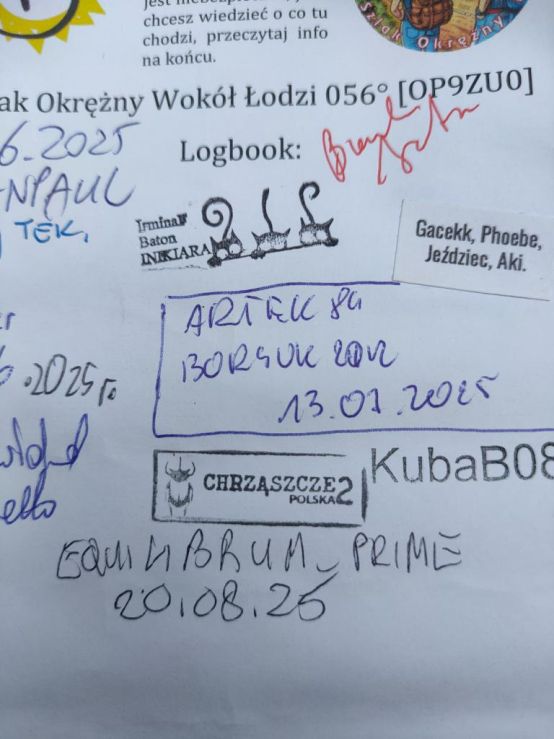 chcesz wiedzieć o co tu
chodzi, przeczytaj info
na końcu.
Szlak Okrężny
ak Okrężny Wokół Łodzi 056° [OP9ZU0]
Logbook:
6.2025
NPAUL
TEK,
Irmina
Baton
INKIARA
Gacekk, Phoebe,
Jeździec, Aki.
ARTEK 84
BORSUK 2012
13.07.2025
.2025 r.
CHRZĄSZCZE2
POLSKA
KubaB08
EQUILIBRUM_PRIME
20.08.25